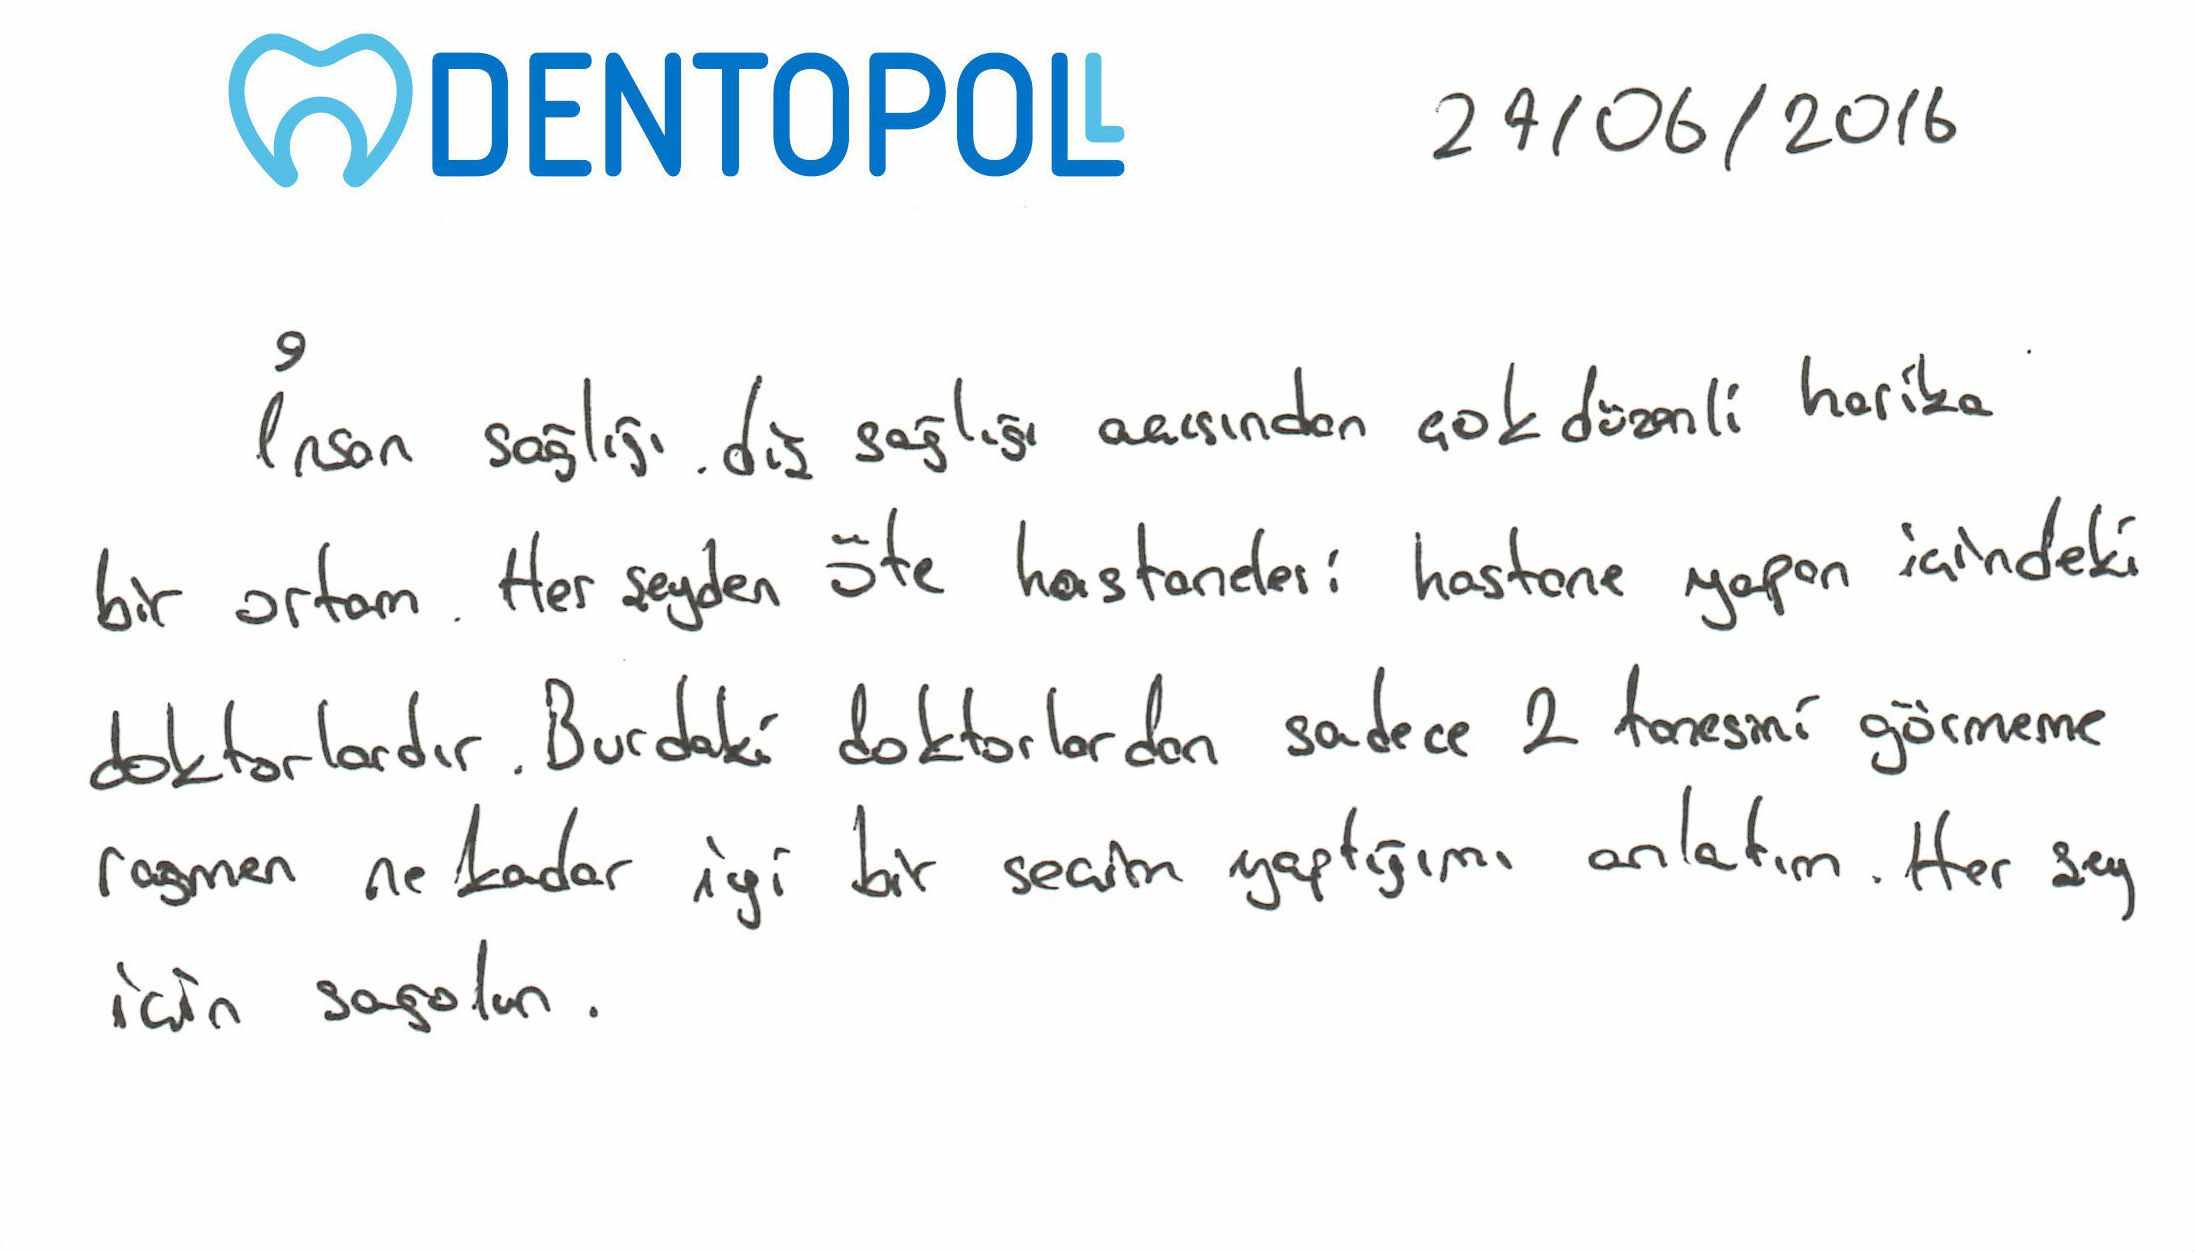 DENTOPOLL
24/06/2016
İnsan sağlığı. diş sağlığı acısından çok düzenli harika
bir ortam. Her şeyden öte hastaneleri hastane yapan içindeki
doktorlardır. Burdaki doktorlardan sadece 2 tanesini görmeme
ragmen ne kadar iyi bir secim yaptığımı anlatım. Her şey
için sagolun.